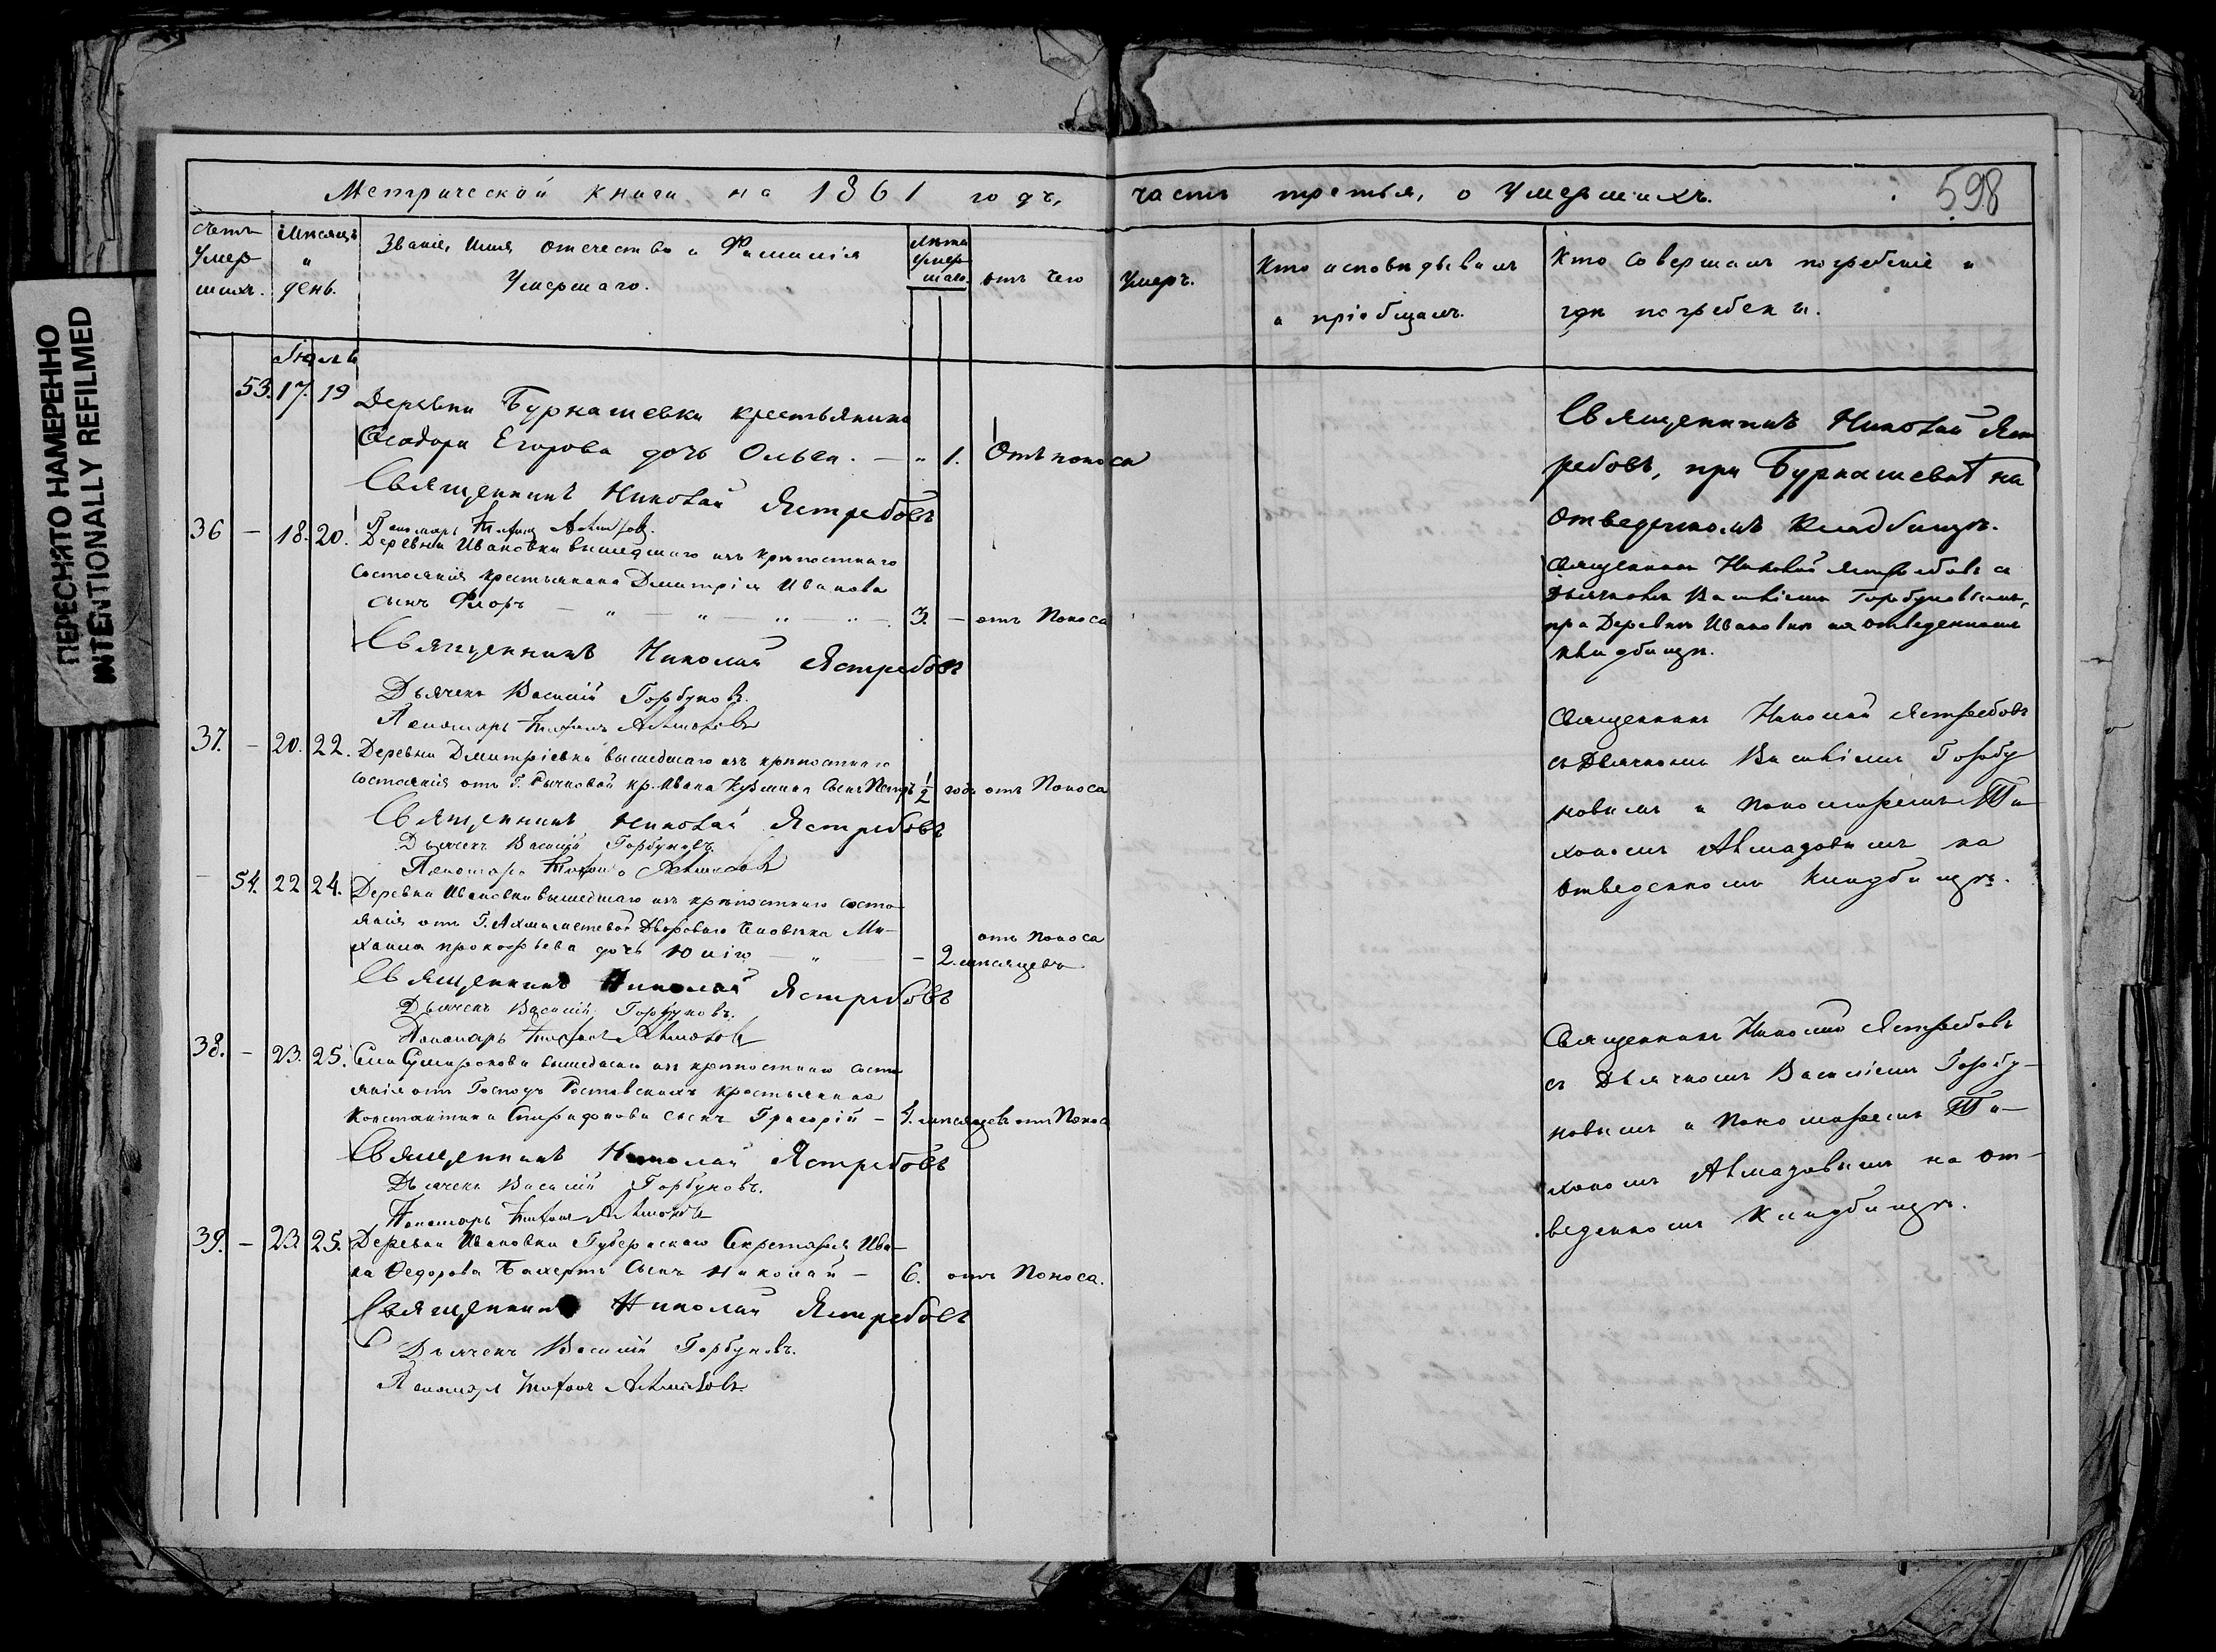 ПЕРЕСНЯТО НАМЕРЕННО
INTENTIONALLY REFILMED
Метрической книги на 1861 годъ, часть третья, о умершихъ.
598
счетъ умер шихъ.
Мѣсяцъ и день.
Званіе, Имя отечество и Фамилія
Умершаго.
лѣта умер шаго.
отъ чего умеръ.
Кто исповѣдывалъ
и пріобщалъ.
Кто совершалъ погребеніе и
гдѣ погребены.
Іюль
53. 17. 19 Деревни Бурнашевки крестьянина
Ѳеодора Егорова дочь Ольга. — „ 1. Отъ поноса
Священникъ Николай Ястребовъ
Пономарь Тихонъ Алмазовъ.
Священникъ Николай Яст
ребовъ, при Бурнашевкѣ на
отведенномъ кладбищѣ.
36 — 18. 20. Деревни Ивановки вышедшаго изъ крѣпостнаго
состоянія крестьянина Дмитрія Иванова
сынъ Флоръ — „ — „ — „ — „ — 3. — отъ Поноса
Священникъ Николай Ястребовъ
Дьячекъ Василій Горбуновъ.
Пономарь Тихонъ Алмазовъ
Священникъ Николай Ястребовъ съ
Дьячкомъ Василіемъ Горбуновымъ,
при Деревнѣ Ивановкѣ на отведенномъ
кладбищѣ.
37. — 20. 22. Деревни Дмитріевки вышедшаго изъ крѣпостнаго
состоянія отъ Г. Рычковой кр. Ивана Кузмина Сынъ Петръ ½ года отъ Поноса
Священникъ Николай Ястребовъ
Дьячекъ Василій Горбуновъ.
Пономарь Тихонъ Алмазовъ
Священникъ Николай Ястребовъ
съ Дьячкомъ Василіемъ Горбу
новымъ и пономаремъ Ти
хономъ Алмазовымъ на
отведенномъ Кладбищѣ.
54. 22 24. Деревни Ивановки вышедшаго изъ крѣпостнаго состо
янія отъ Г. Дворового Человѣка Ми-
хаила Прокофьева дочь Юлія — „ — — 2. мѣсяцевъ отъ Поноса
Священникъ Николай Ястребовъ
Дьячекъ Василій Горбуновъ.
Пономарь Тихонъ Алмазовъ
38. — 23. 25. Села Сумарокова вышедшаго изъ крѣпостнаго состо
янія отъ Господъ Ростовскихъ крестьянина
Константина Спиридонова сынъ Григорій — мѣсяцевъ отъ Поноса
Священникъ Николай Ястребовъ
Дьячекъ Василій Горбуновъ.
Пономарь Тихонъ Алмазовъ
Священникъ Николай Ястребовъ
съ Дьячкомъ Василіемъ Горбу-
новымъ и Пономаремъ Ти-
хономъ Алмазовымъ на от-
веденномъ Кладбищѣ.
39. — 23. 25. Деревни Ивановки Губернскаго Секретаря Ива-
на Ѳедорова сынъ Николай — 6. отъ Поноса.
Священникъ Николай Ястребовъ
Дьячекъ Василій Горбуновъ.
Пономарь Тихонъ Алмазовъ